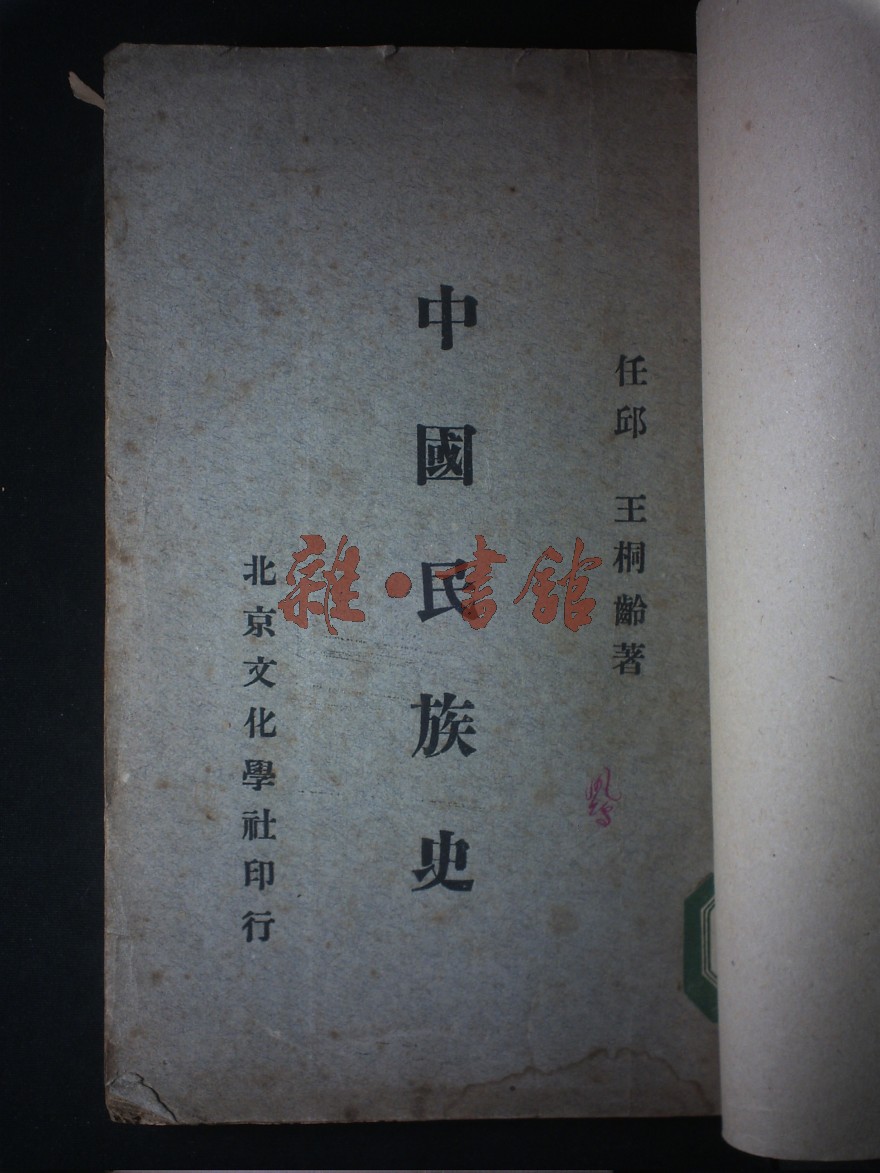 任邱 王桐齡著
中國民族史
北京文化學社印行
雜·書館